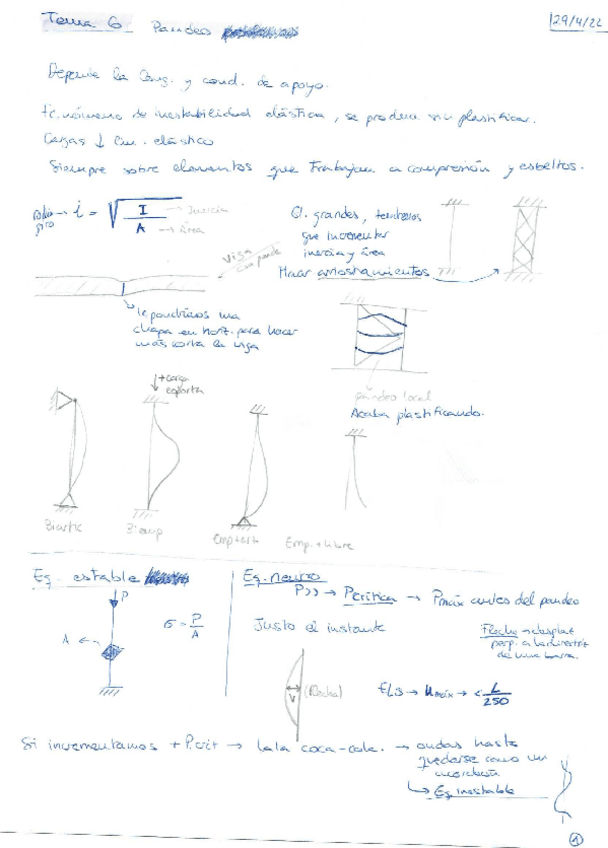 Tema 6 Pandeo
29/4/22
Depende la long. y cond. de apoyo.
Fenómeno de inestabilidad elástica, se produce sin plastificar.
Cargas ↓ lím. elástico
Siempre sobre elementos que trabajan a compresión y esbeltos.
radio giro → i = √(I/A)
→ Inercia
→ Área
Cl. grandes, tendremos
que incrementar
inercia y área
Hacer arriostramientos
Viga
le pondríamos una
chapa en horiz. para hacer
más corta la viga
pandeo local
Acaba plastificando.
↓ + carga
soporta
Biartic
Biemp
Emp+art
Emp. + libre
Eq. estable
P
A
σ = P/A
Eq. neutro
P>> → Pcrítica → Pmáx antes del pandeo
Justo el instante
Flecha → desplaz
perp. a la directriz
de una barra.
v (flecha)
ELS → umáx → < L/250
Si incrementamos + Pcrit → lata coca-cola. → ondas hasta
quedarse como un
acordeón
↳ Eq. inestable
1